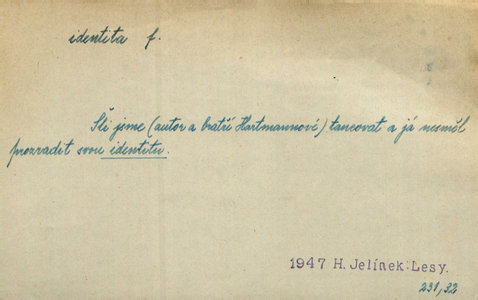 identita f.
Šli jsme (autor a bratří Hartmannové) tancovat a já nesměl
prozradit svou identitu.
1947 H. Jelínek: Lesy.
231,32